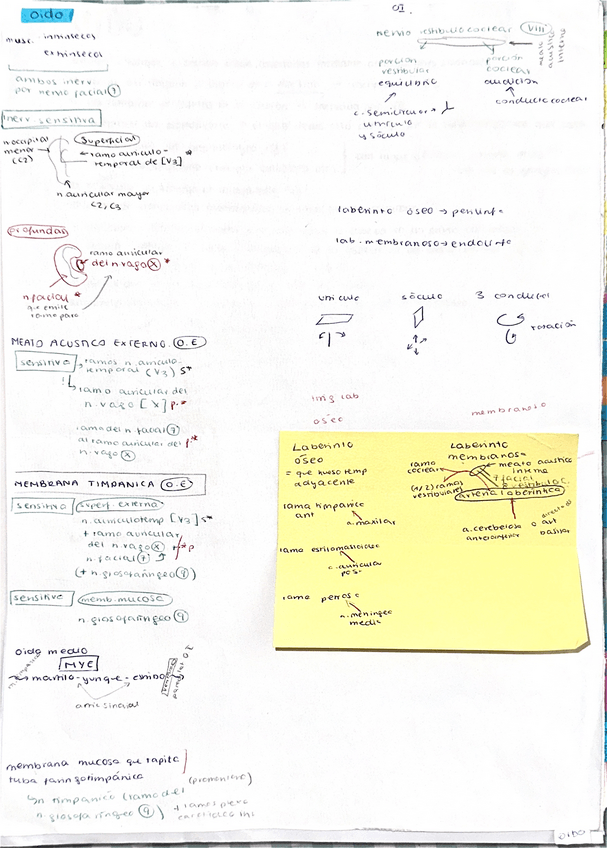 OIDO
musc. intrinsecos
extrinsecos
ambos inerv
por nervio facial (7)
inerv. sensitiva
superficial
n. occipital
menor
(C2)
ramo auriculo-
temporal de [V3] *
n auricular mayor
C2, C3
profundas
ramo auricular
del n. vago (X) *
n. facial *
que emite
ramo para
MEATO ACUSTICO EXTERNO. O.E
sensitiva
ramos n. auriculo-
temporal (V3) S*
ramo auricular del
n. vago [X] p.*
rama del n facial (7)
al ramo auricular del p.*
n. vago (X)
MEMBRANA TIMPANICA (O.E)
sensitiva superf. externa
n. auriculotemp [V3] S*
+ ramo auricular
del n. vago (X) *p
n. facial (7)
(+ n. glosofaríngeo (9)
sensitiva memb. mucosa
n. glosofaríngeo (9)
oido medio
MYE
martillo - yunque - estribo
artic sinovial
membrana mucosa que tapiza
tuba faringotimpánica
(promontorio)
n timpanico (ramo del
n. glosofaríngeo (9)
OI
nervio vestibulo coclear (VIII)
meato
acustico
interno
porción
vestibular
equilibrio
porción
coclear
audición
conducto coclear
c. semicircular
utriculo
y sáculo
laberinto óseo → perilinfa
lab. membranoso → endolinfa
utriculo
sáculo
3 conductos
rotación
irrig lab
óseo
membranoso
Laberinto
óseo
= que hueso temp
adyacente
rama timpanica
ant
a. maxilar
rama estilomastoidea
a. auricular
pos.
rama petrosa
a. meningea
media
Laberinto
membranoso
ramo
coclear
(x2) ramos
vestibulares
meato acustico
interno
arteria laberintica
a. cerebelosa
anteroinferior
o
basilar
OIDO